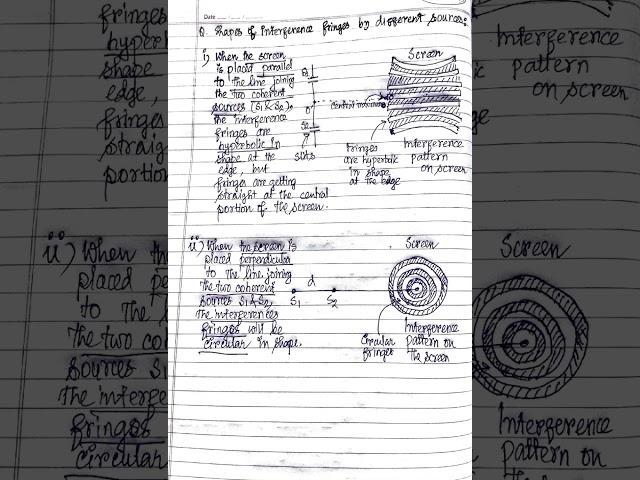 Date
Q. Shapes of Interference fringes by different sources:
i) When the screen
is placed parallel
to the line joining
the two coherent
sources (S1 & S2),
the interference
fringes are
hyperbolic in
shape at the
edge, but
fringes are getting
straight at the central
portion of the screen.
S1
d
S2
slits
Screen
Central maximum
fringes
are hyperbolic
in shape
at the edge
Interference
pattern
on screen
ii) When the screen is
placed perpendicular
to the line joining
the two coherent
sources S1 & S2
the interferences
fringes will be
circular in shape.
d
S1 S2
Screen
Circular
fringes
Interference
pattern on
the screen
fringes
hyperb
shape
edge,
fringes
straight
portion
ii) When
placed pe
to the li
the two coh
sources S1
the interfe
fringes
circular
Interference
pattern
on screen
Screen
Interference
pattern on